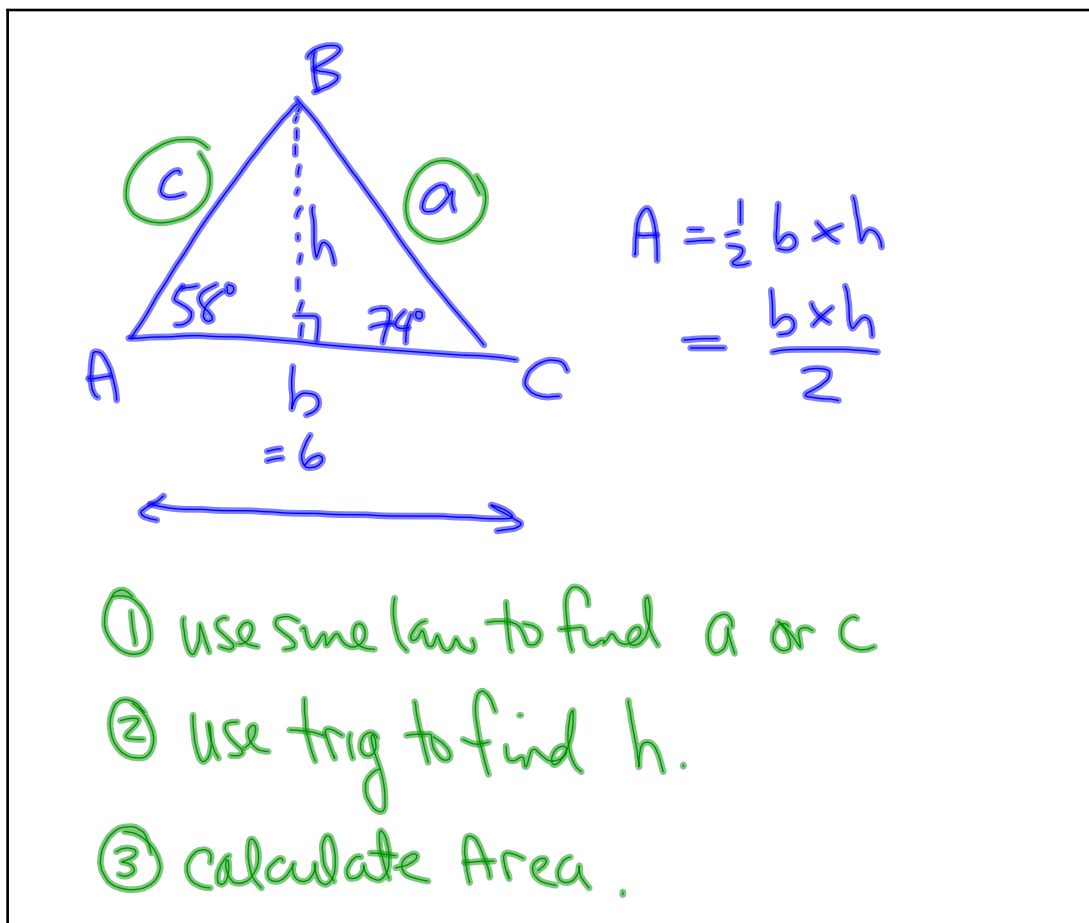 B
c
a
h
58°
74°
A
C
b
= 6
A = 1/2 b × h
= b × h / 2
① use sine law to find a or c
② use trig to find h.
③ calculate Area.